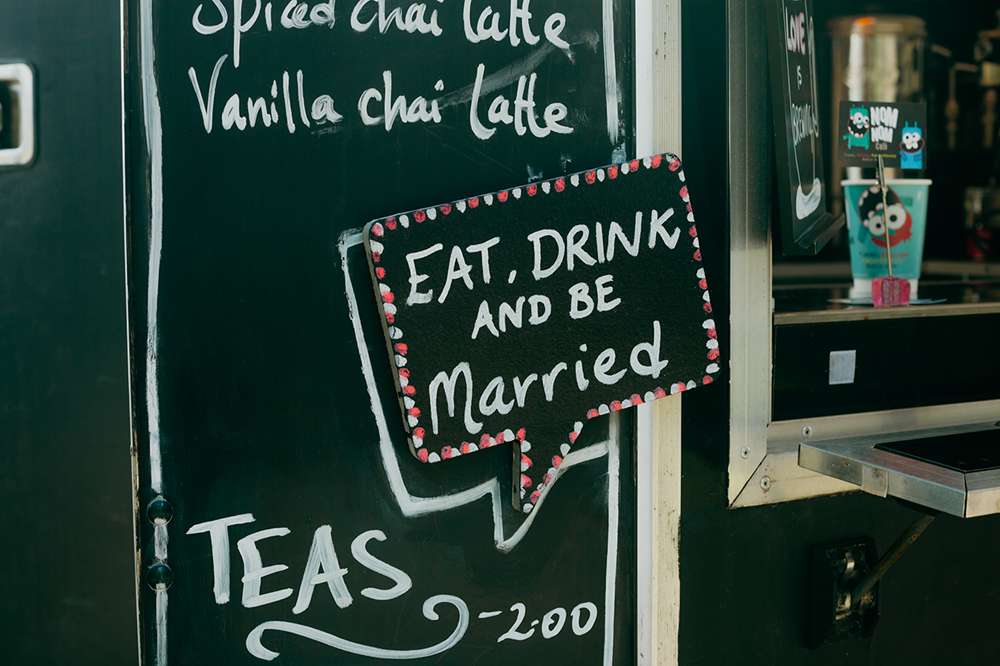 Spiced chai latte
Vanilla chai latte
EAT, DRINK
AND BE
Married
TEAS -2:00
LOVE
is
BREWING
NOM
NOM
Café